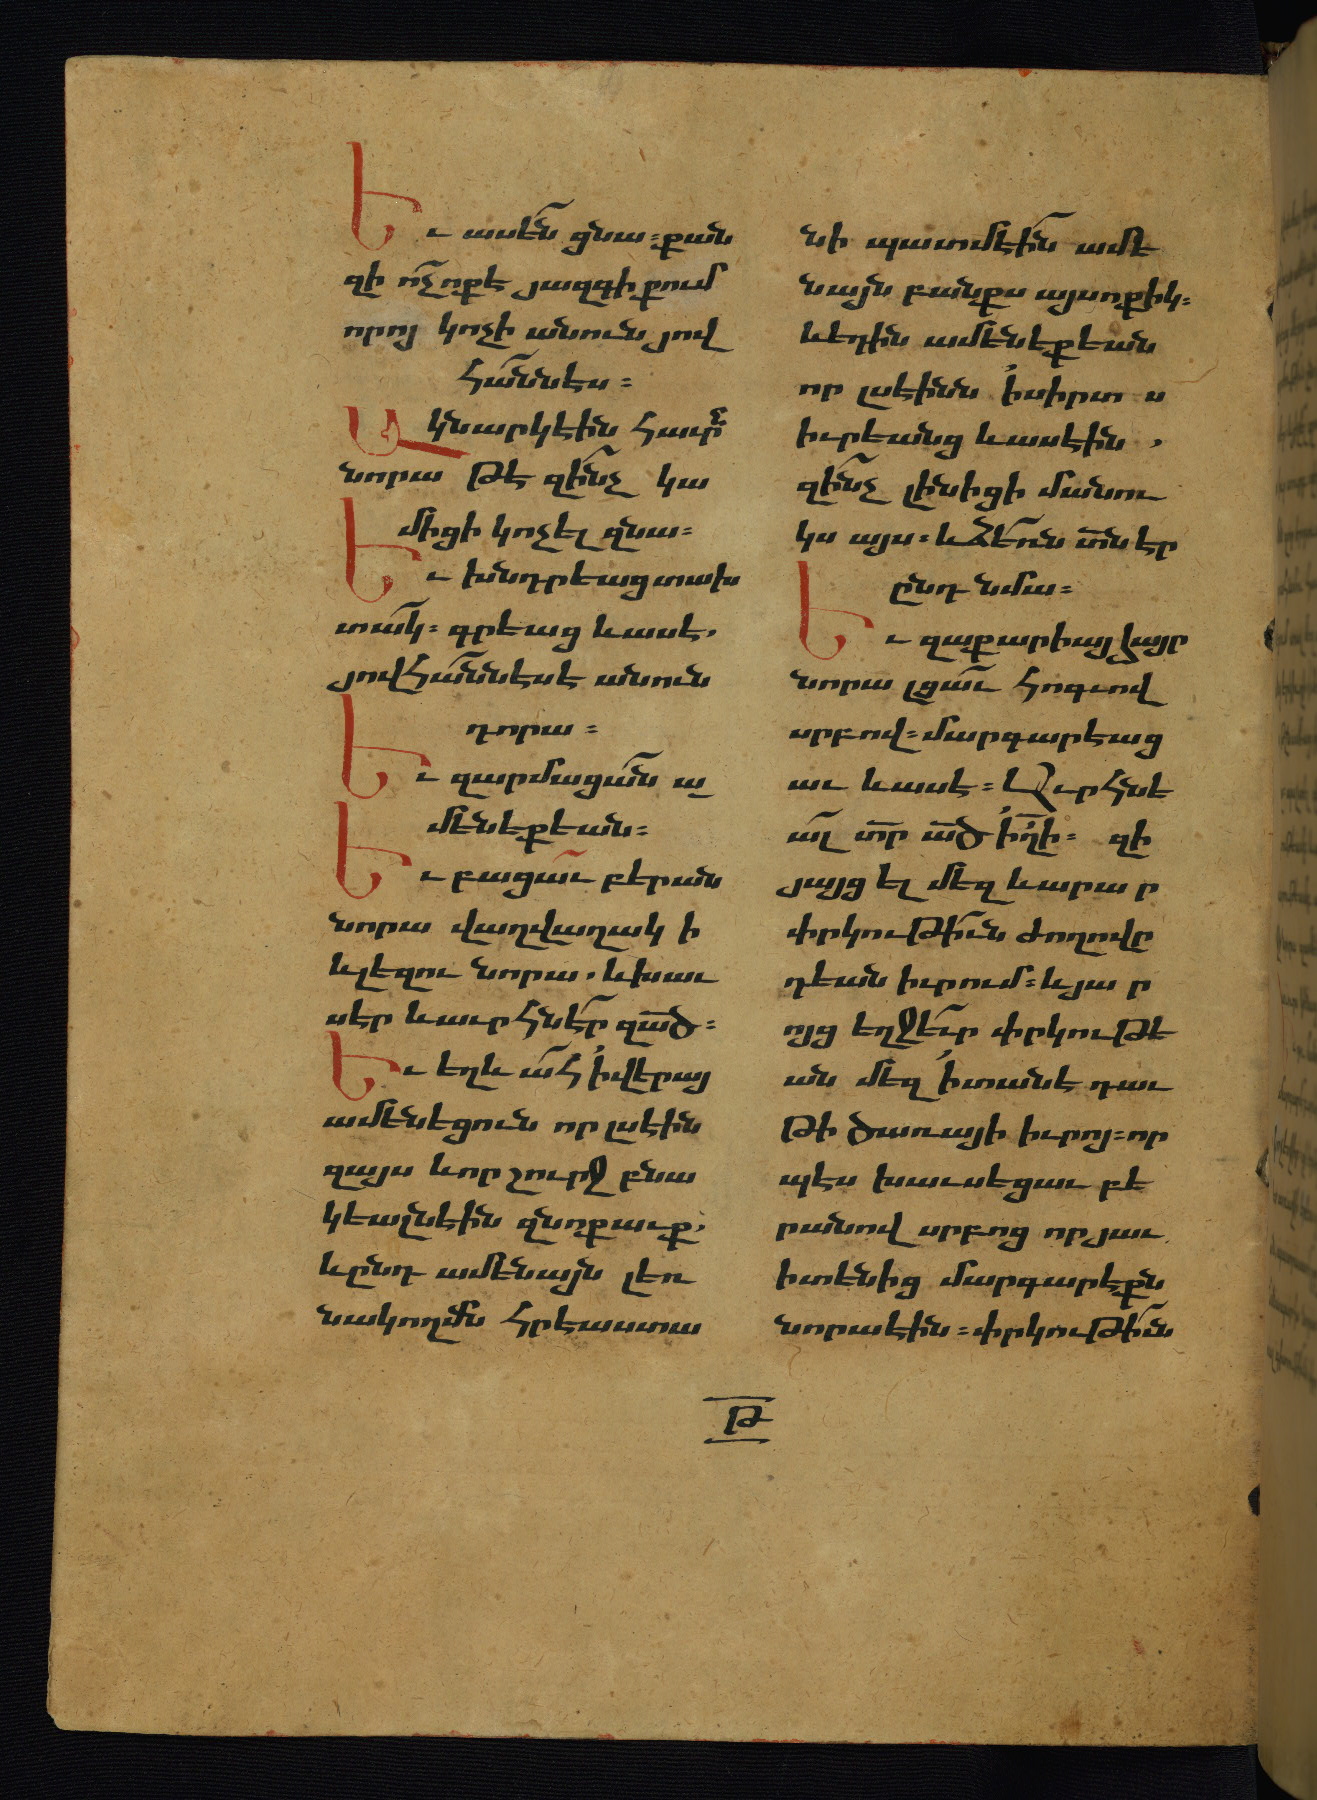 Եւ ասեն ցնա = քան
զի ոչ ոք է յազգի քում
որոյ կոչի անուն յով
հաննէս =
Ակնարկէին հաւր
նորա թէ զինչ կա
միցի կոչել զնա =
Եւ խնդրեաց տախ
տակ = գրեաց և ասէ .
յովհաննէս է անուն
դորա =
Եւ զարմացան ա
մենեքեան =
Եւ բացաւ բերան
նորա վաղվաղակի
և լեզու նորա . և խաւ
սէր և աւրհնէր զած =
Եւ եղև ահ ի վերայ
ամենեցուն որ լսէին
զայս և որ շուրջ բնա
կեալ էին զնոքաւք .
և ընդ ամենայն լեռ
նակողմն հրէաստա
նի պատմէին ամե
նայն բանքս այսոքիկ =
և եդին ամենեքեան
որ լսէինն ի սիրտս
իւրեանց և ասէին .
զինչ լինիցի մանու
կս այս = և ձեռն տն էր
ընդ նմա =
Եւ զաքարիայ հայր
նորա լցաւ հոգւով
սրբով = մարգարեաց
աւ և ասէ = Աւրհնե
ալ տր ած իղի = զի
յայց ել մեզ և արար
փրկութիւն ժողովը
դեան իւրում = և յար
ոյց եղջեւր փրկութե
ան մեզ ի տանէ դաւ
թի ծառայի իւրոյ = որ
պէս խաւսեցաւ բե
րանով սրբոց որ յաւ
իտենից մարգարեքն
նորա էին = փրկութիւն
Թ